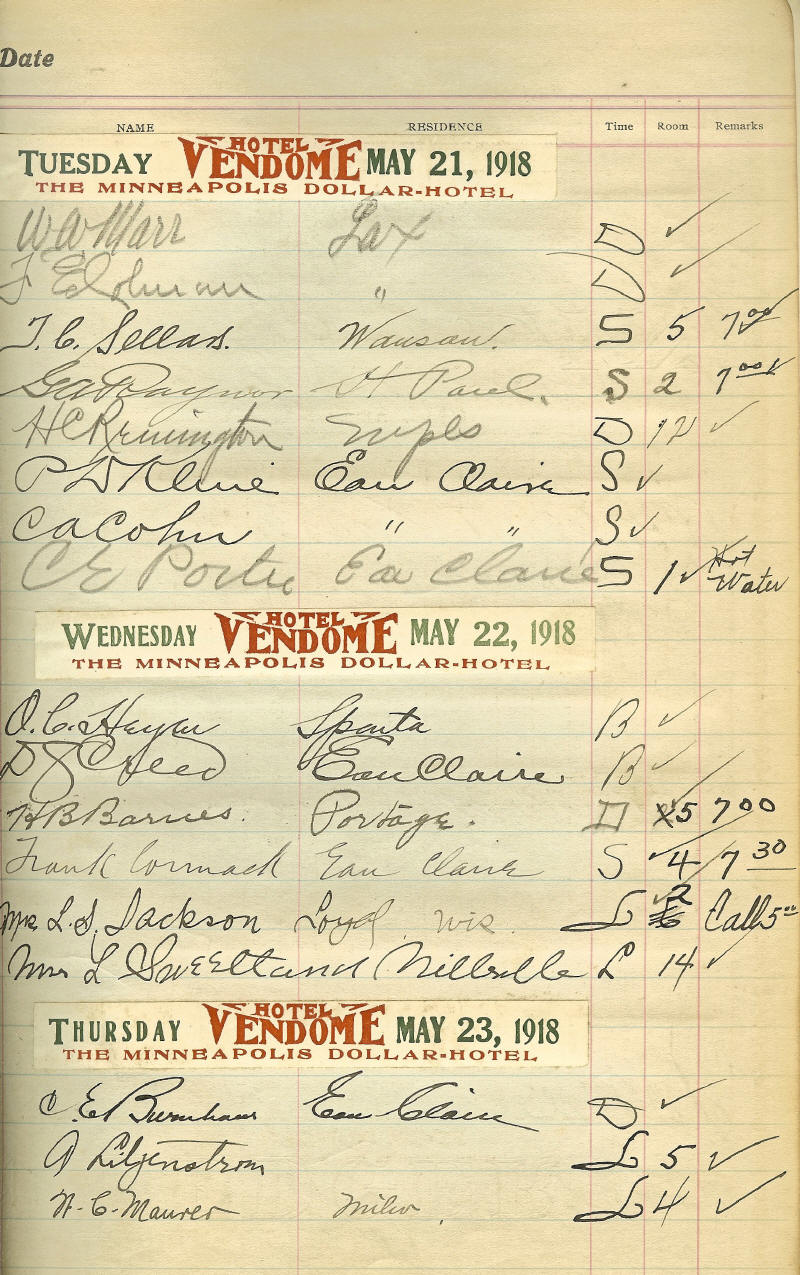 Date
NAME RESIDENCE Time Room Remarks
TUESDAY HOTEL VENDOME MAY 21, 1918
THE MINNEAPOLIS DOLLAR-HOTEL
W W Marr Lax D ✓
F E " D ✓
T. C. Sellars. Wausau. S 5 7 00 ✓
Raynor St Paul. S 2 7 00 ✓
H C Remington Mpls D 12 ✓
P D Kline Eau Claire S ✓
C A Cohn " " S ✓
C E Porter Eau Claire S 1 ✓ Hot Water
WEDNESDAY HOTEL VENDOME MAY 22, 1918
THE MINNEAPOLIS DOLLAR-HOTEL
O. C. Sparta B ✓
D J Creed Eau Claire B ✓
H B Barnes. Portage. D 5 7 00
Frank Cormack Eau Claire S ✓ 4 7 30
Mrs L. S. Jackson Loyd, Wis. L 2 Call 5 00
Mrs L Sweetland Neillsville L 14 ✓
THURSDAY HOTEL VENDOME MAY 23, 1918
THE MINNEAPOLIS DOLLAR-HOTEL
C. E. Burnham Eau Claire D ✓
A Liljenstrom L 5 ✓
W. C. Maurer Milw. L 4 ✓